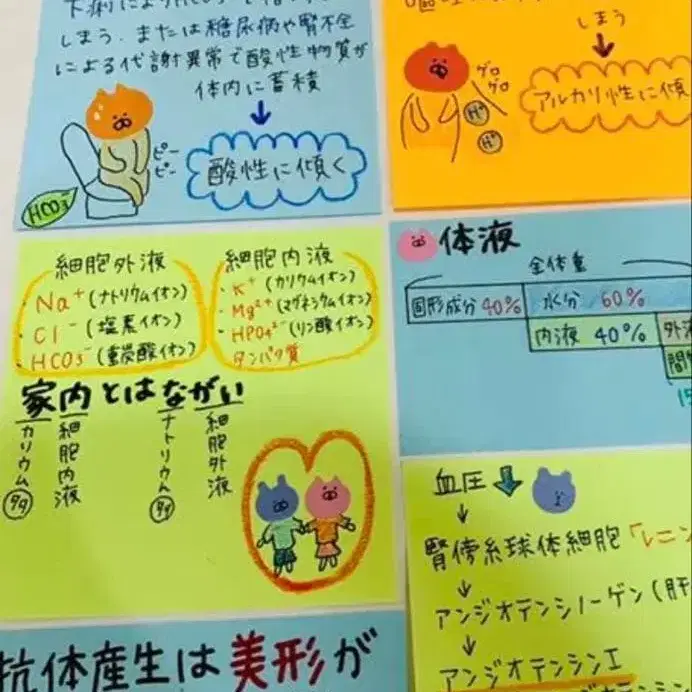 下痢によりHCO3⁻を
しまう。または糖尿病や腎不全
による代謝異常で酸性物質が
体内に蓄積
↓
酸性に傾く
ピー
ピー
HCO3⁻
しまう
↓
ゲロ
ゲロ
H⁺
H⁺
アルカリ性に傾
細胞外液
・Na⁺(ナトリウムイオン)
・Cl⁻(塩素イオン)
・HCO3⁻(重炭酸イオン)
細胞内液
・K⁺(カリウムイオン)
・Mg²⁺(マグネシウムイオン)
・HPO4²⁻(リン酸イオン)
・タンパク質
家内とはながい
カリウム㊛
細胞内液
ナトリウム
細胞外液
体液
全体重
固形成分 40%
水分 60%
内液 40%
外液
間
15
血圧↓
↓
腎傍糸球体細胞「レニン
↓
アンジオテンシノーゲン(肝
↓
アンジオテンシンI
抗体産生は美形が